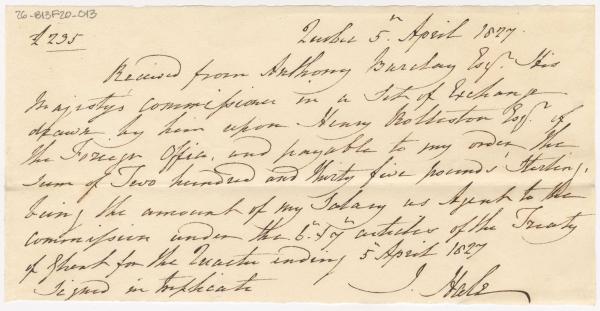 26-B13F20-013
£235
Quebec 5th April 1827.
Received from Anthony Barclay Esqr. His
Majesty's Commissioner in a Set of Exchange
drawn by him upon Henry Rolleston Esqr. of
the Foreign Office, and payable to my order the
sum of Two hundred and thirty five pounds Sterling,
being the amount of my Salary as Agent to the
commission under the 6th & 7th articles of the Treaty
of Ghent for the Quarter ending 5th April 1827
Signed in Triplicate
J. Hale